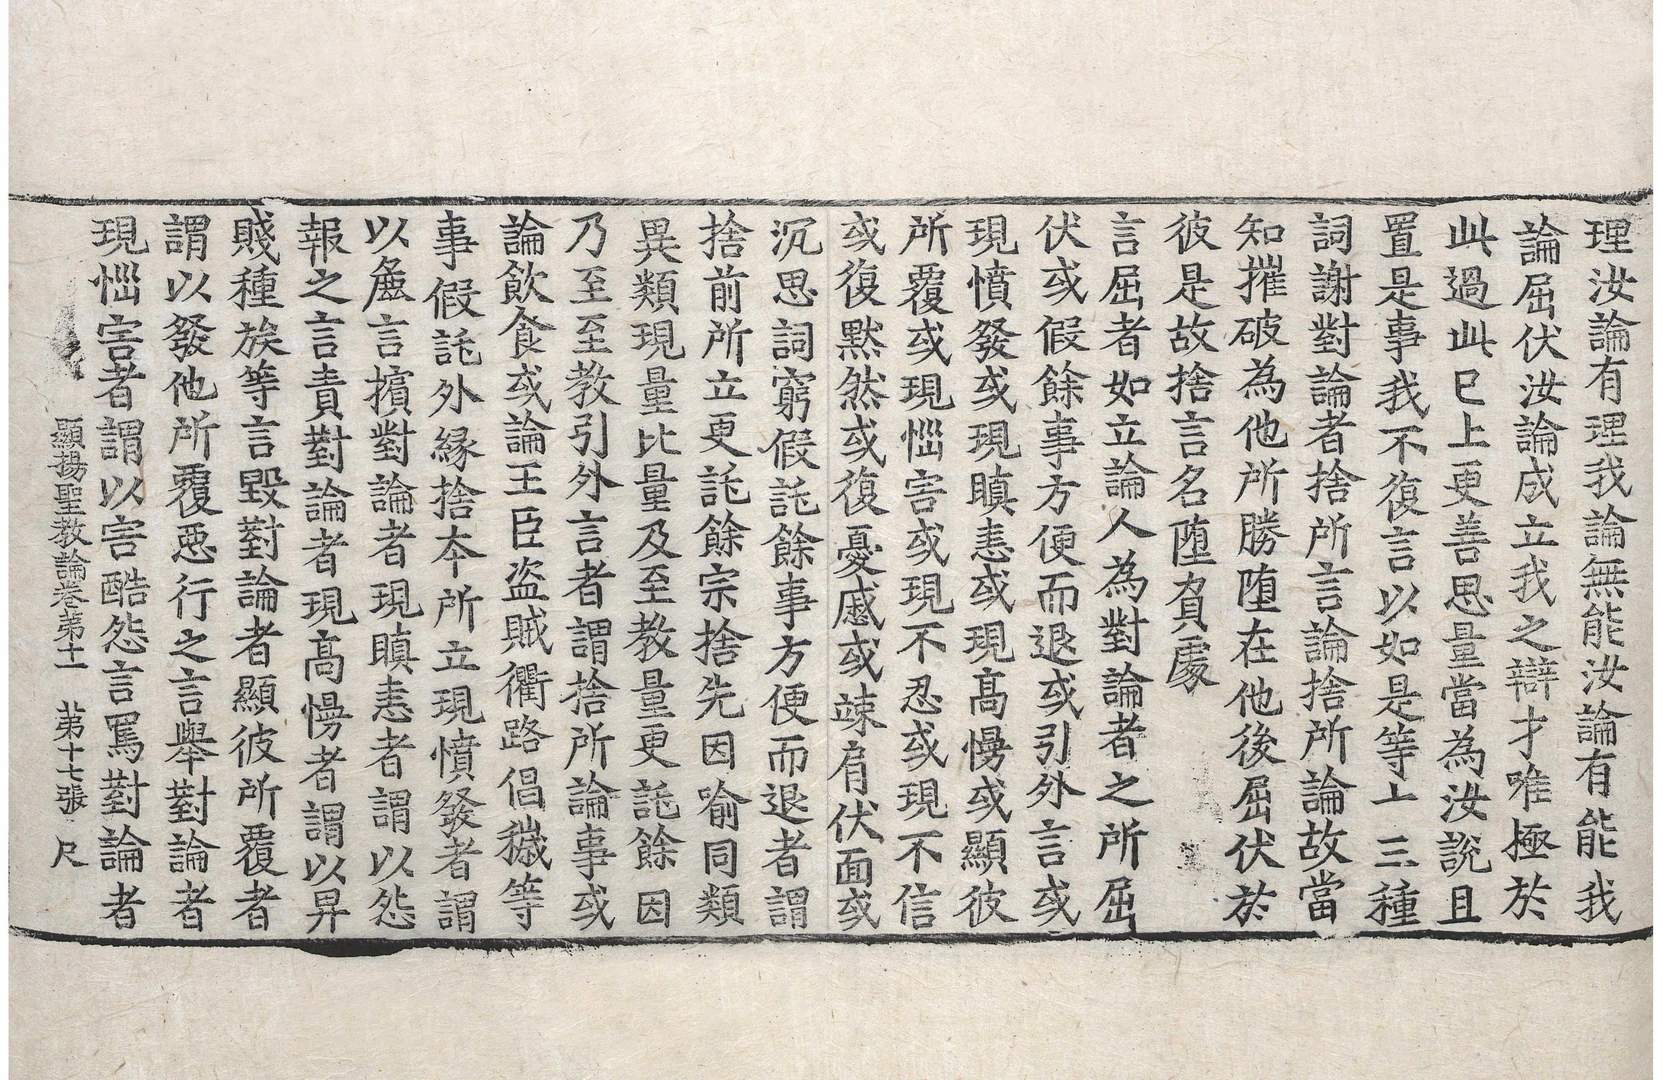 理汝論有理我論無能汝論有能我
論屈伏汝論成立我之辯才唯極於
此過此已上更善思量當為汝說且
置是事我不復言以如是等十三種
詞謝對論者捨所言論捨所論故當
知摧破為他所勝堕在他後屈伏於
彼是故捨言名堕負處
言屈者如立論人為對論者之所屈
伏或假餘事方便而退或引外言或
現憤發或現瞋恚或現高慢或顯彼
所覆或現惱害或現不忍或現不信
或復默然或復憂慼或竦肩伏面或
沉思詞窮假託餘事方便而退者謂
捨前所立更託餘宗捨先因喻同類
異類現量比量及至教量更託餘因
乃至至教引外言者謂捨所論事或
論飲食或論王臣盜賊衢路倡穢等
事假託外緣捨本所立現憤發者謂
以麁言擯對論者現瞋恚者謂以怨
報之言責對論者現高慢者謂以卑
賤種族等言毀對論者顯彼所覆者
謂以發他所覆惡行之言舉對論者
現惱害者謂以害酷怨言罵對論者
顯揚聖教論卷第十一 第十七張 尺